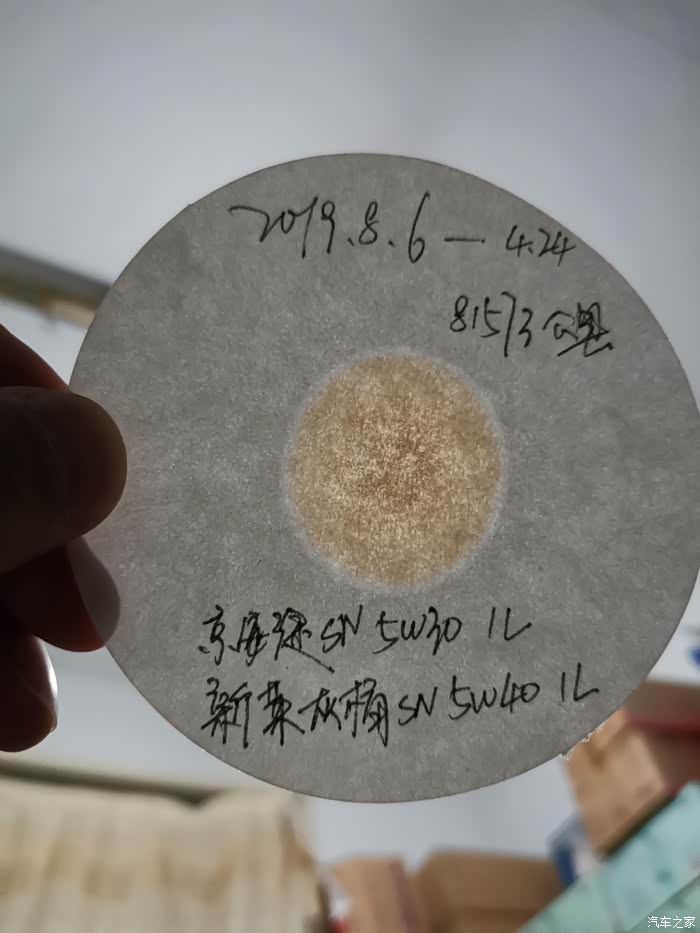 2019.8.6 — 4.24
81573公里
京保绿 SN 5W30 1L
新美灰桶 SN 5W40 1L
汽车之家